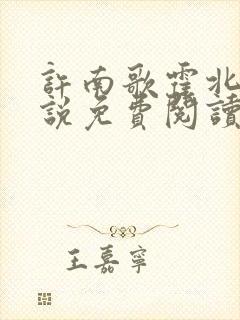 許南歌霍北
說免費閱讀
王嘉寧